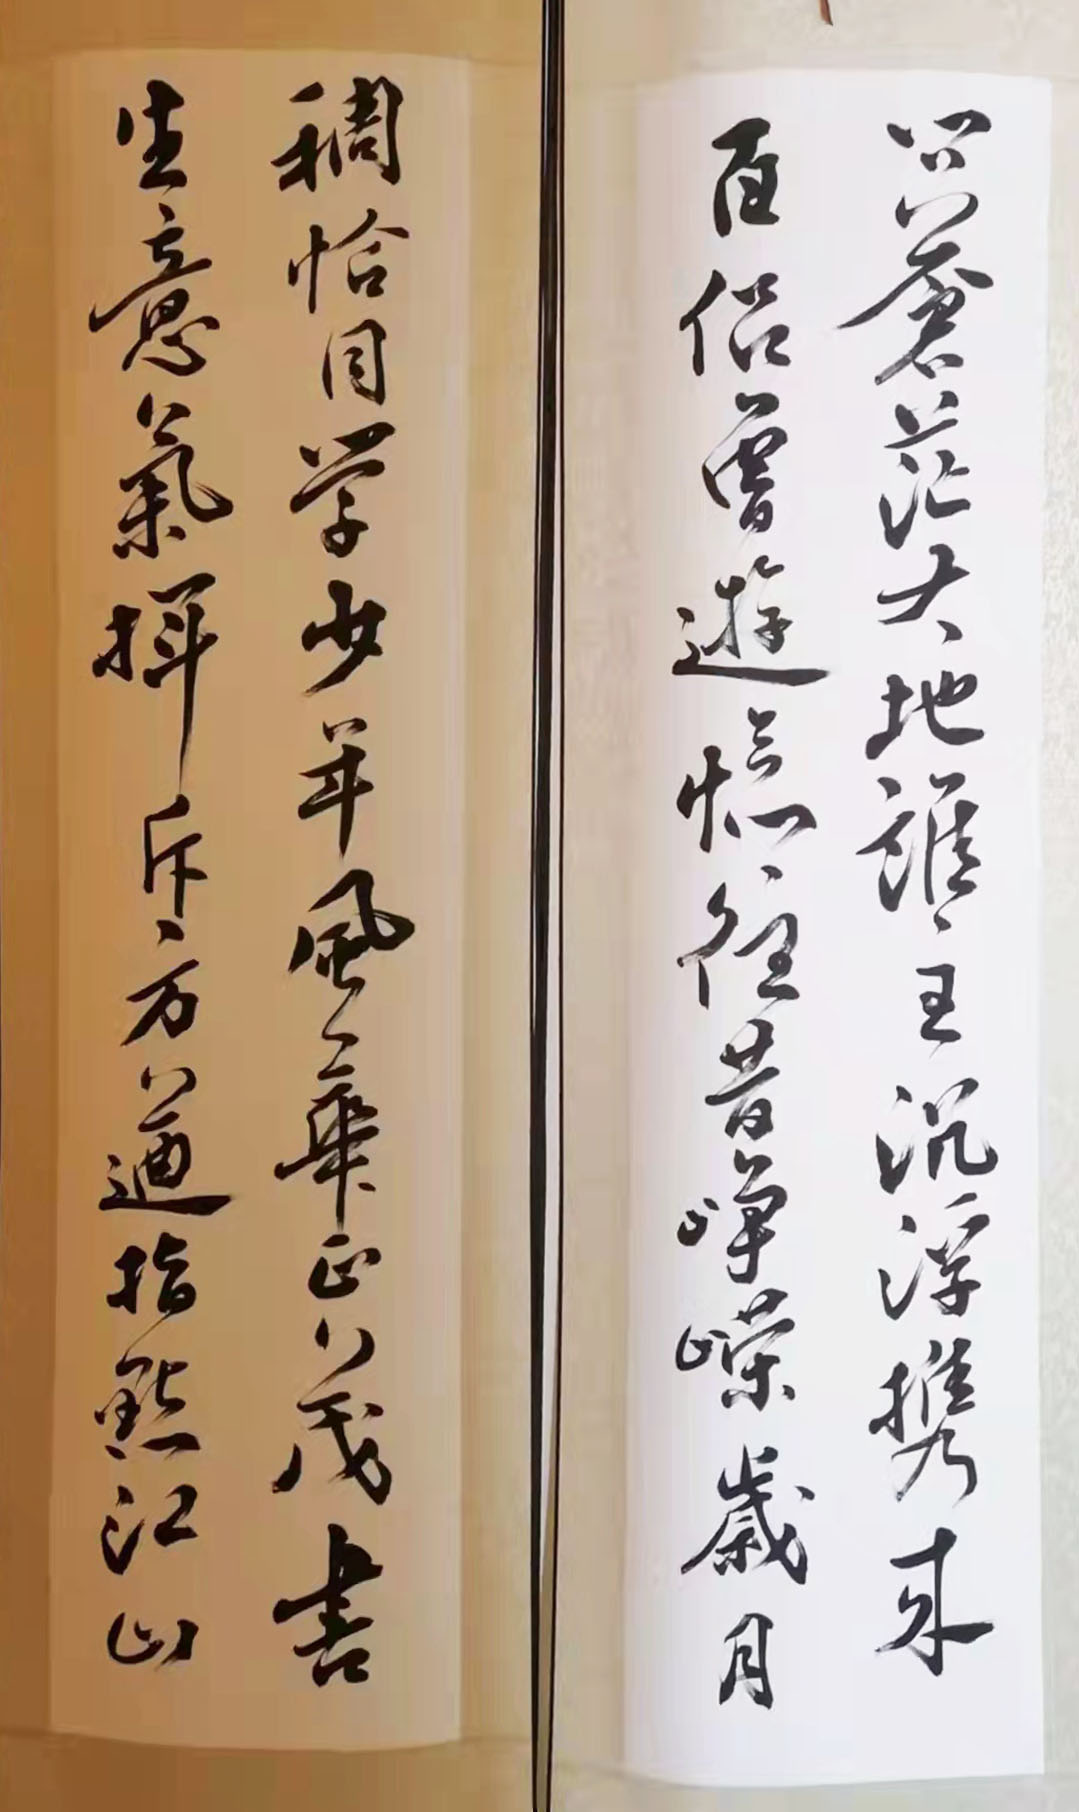 问蒼茫大地誰主沉浮携来
百侣曾遊憶往昔峥嵘歲月
稠恰同学少年風華正茂書
生意氣揮斥方遒指點江山